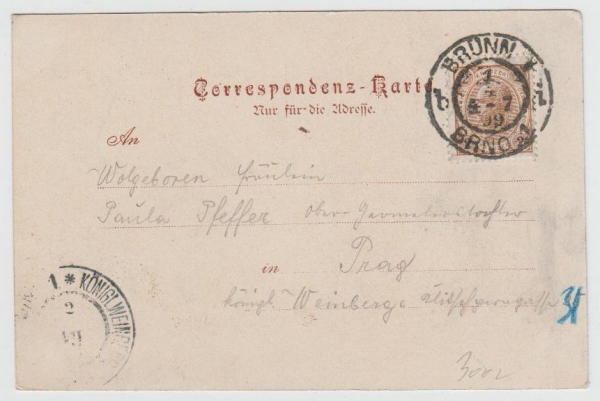 BRÜNN 1
7
4-7
99
BRNO 1
Correspondenz-Karte
Nur für die Adresse.
An
Wolgeboren Fräulein
Paula Pfeffer Ober-Geometerstochter
in Prag
königl. Weinberge
1 * KÖNIGL. WEINBERGE
2
VII